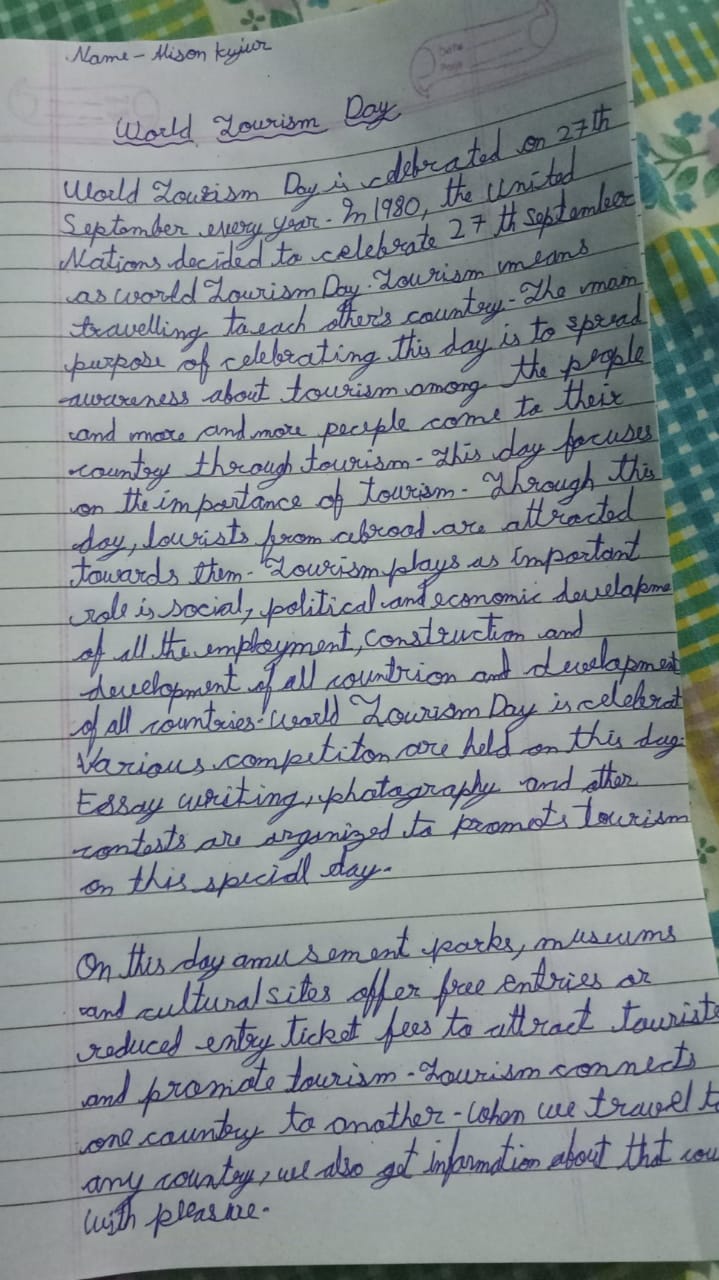 Name - Alison Kujur
Date
Page
World Tourism Day
World Tourism Day is celebrated on 27th
September every year. In 1980, the United
Nations decided to celebrate 27 th September
as world Tourism Day. Tourism means
travelling to each other's country. The main
purpose of celebrating this day is to spread
awareness about tourism among the people
and more and more people come to their
country through tourism. This day focuses
on the importance of tourism. Through this
day, tourists from abroad are attracted
towards them. Tourism plays as important
role is social, political and economic developme
of all the employment, construction and
development of all countrion and development
of all countries. World Tourism Day is celebrat
Various competiton are held on this day.
Essay writing, photography and other
contests are organized to promots tourism
on this special day.
On this day amusement parks, museums
and cultural sites offer free entries or
reduced entry ticket fees to attract tourists
and promote tourism. Tourism connects
one country to another. When we travel to
any country, we also get information about that cou
with pleasure.